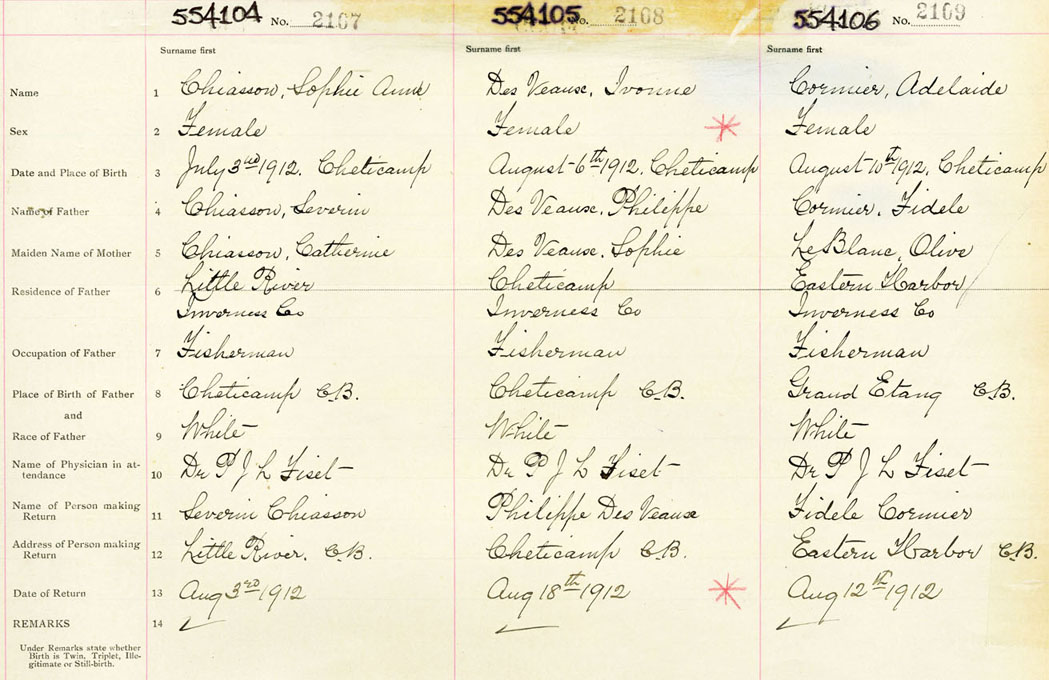 554104 No. 2107 554105 No. 2108 554106 No. 2109
Surname first Surname first Surname first
Name 1 Chiasson, Sophie Anne Des Veaux, Ivonne Cormier, Adelaide
Sex 2 Female Female Female
Date and Place of Birth 3 July 3rd 1912. Cheticamp August 6th 1912, Cheticamp August 10th 1912, Cheticamp
Name of Father 4 Chiasson, Severin Des Veaux, Philippe Cormier, Fidele
Maiden Name of Mother 5 Chiasson, Catherine Des Veaux, Sophie LeBlanc, Olive
Residence of Father 6 Little River Cheticamp Eastern Harbor
Inverness Co Inverness Co Inverness Co
Occupation of Father 7 Fisherman Fisherman Fisherman
Place of Birth of Father 8 Cheticamp C.B. Cheticamp C.B. Grand Etang C.B.
and
Race of Father 9 White White White
Name of Physician in at-
tendance 10 Dr P J L Fiset Dr P J L Fiset Dr P J L Fiset
Name of Person making
Return 11 Severin Chiasson Philippe Des Veaux Fidele Cormier
Address of Person making
Return 12 Little River, C.B. Cheticamp C.B. Eastern Harbor C.B.
Date of Return 13 Aug 3rd 1912 Aug 18th 1912 Aug 12th 1912
REMARKS 14
Under Remarks state whether
Birth is Twin, Triplet, Ille-
gitimate or Still-birth.